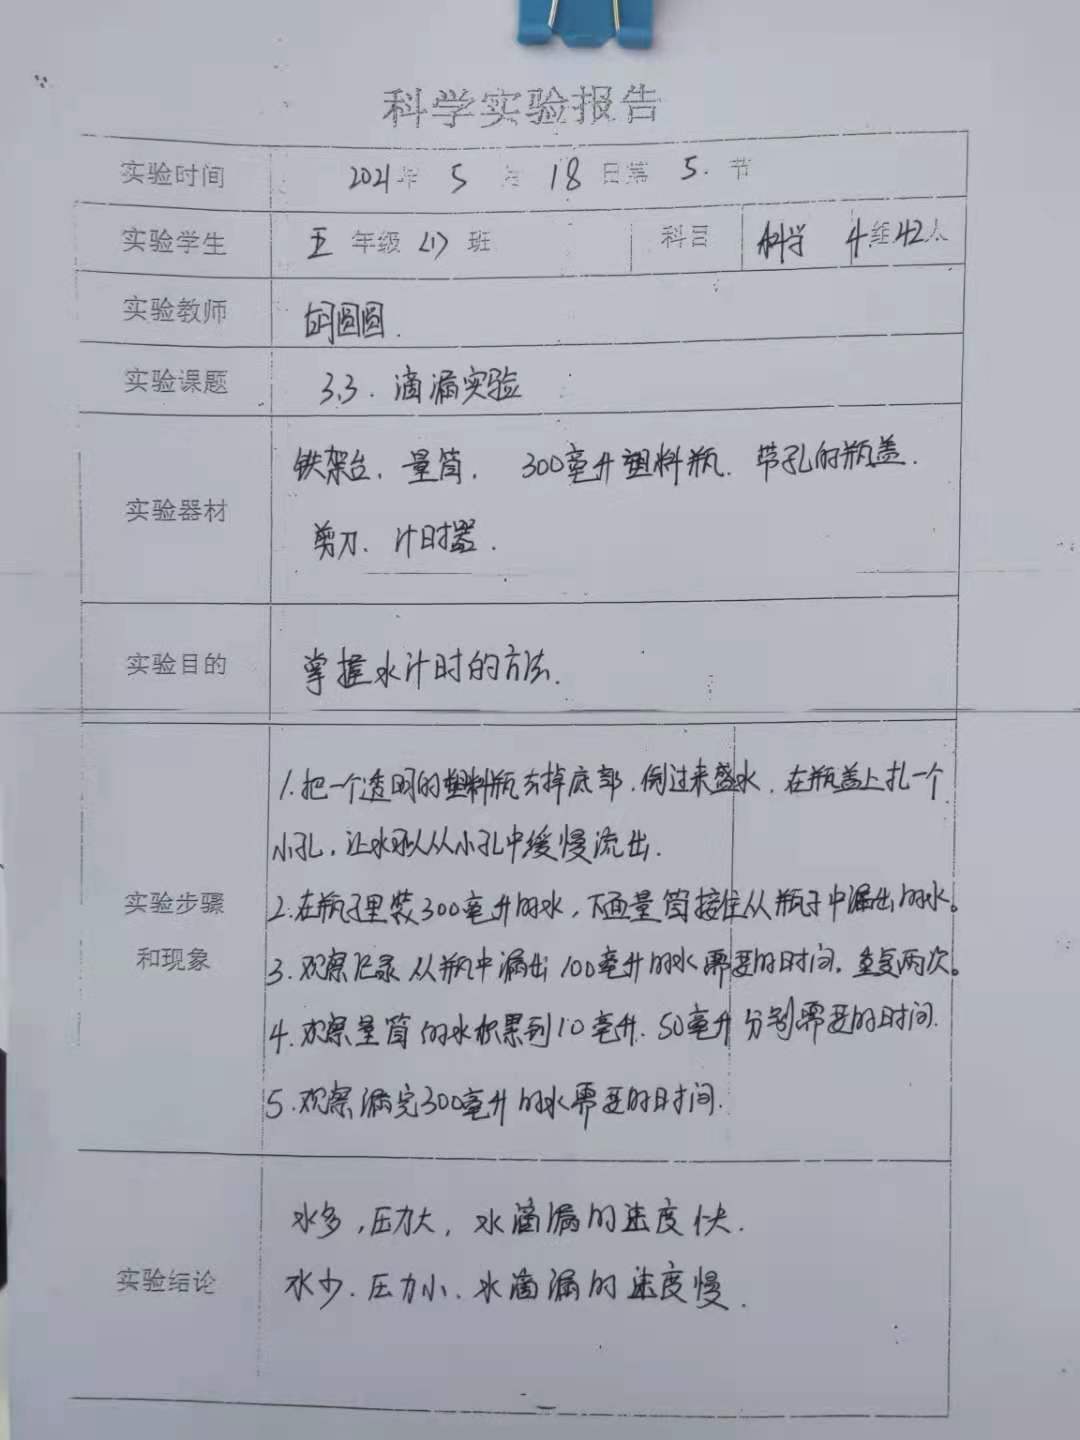 科学实验报告
实验时间 2021年 5 月 18日第 5. 节
实验学生 五 年级 (1) 班 科目 科学 4组42人
实验教师 胡圆圆.
实验课题 3.3. 滴漏实验
实验器材 铁架台、量筒、300毫升塑料瓶、带孔的瓶盖.
剪刀、计时器.
实验目的 掌握水计时的方法.
实验步骤
和现象
1.把一个透明的塑料瓶去掉底部.倒过来盛水.在瓶盖上扎一个
小孔,让水可以从小孔中缓慢流出.
2.在瓶子里装300毫升的水,下面量筒接住从瓶子中漏出的水。
3.观察记录从瓶中漏出100毫升的水需要的时间.重复两次。
4.观察量筒的水积累到10毫升、50毫升分别需要的时间.
5.观察漏完300毫升的水需要的时间.
实验结论 水多,压力大,水滴漏的速度快.
水少、压力小、水滴漏的速度慢.